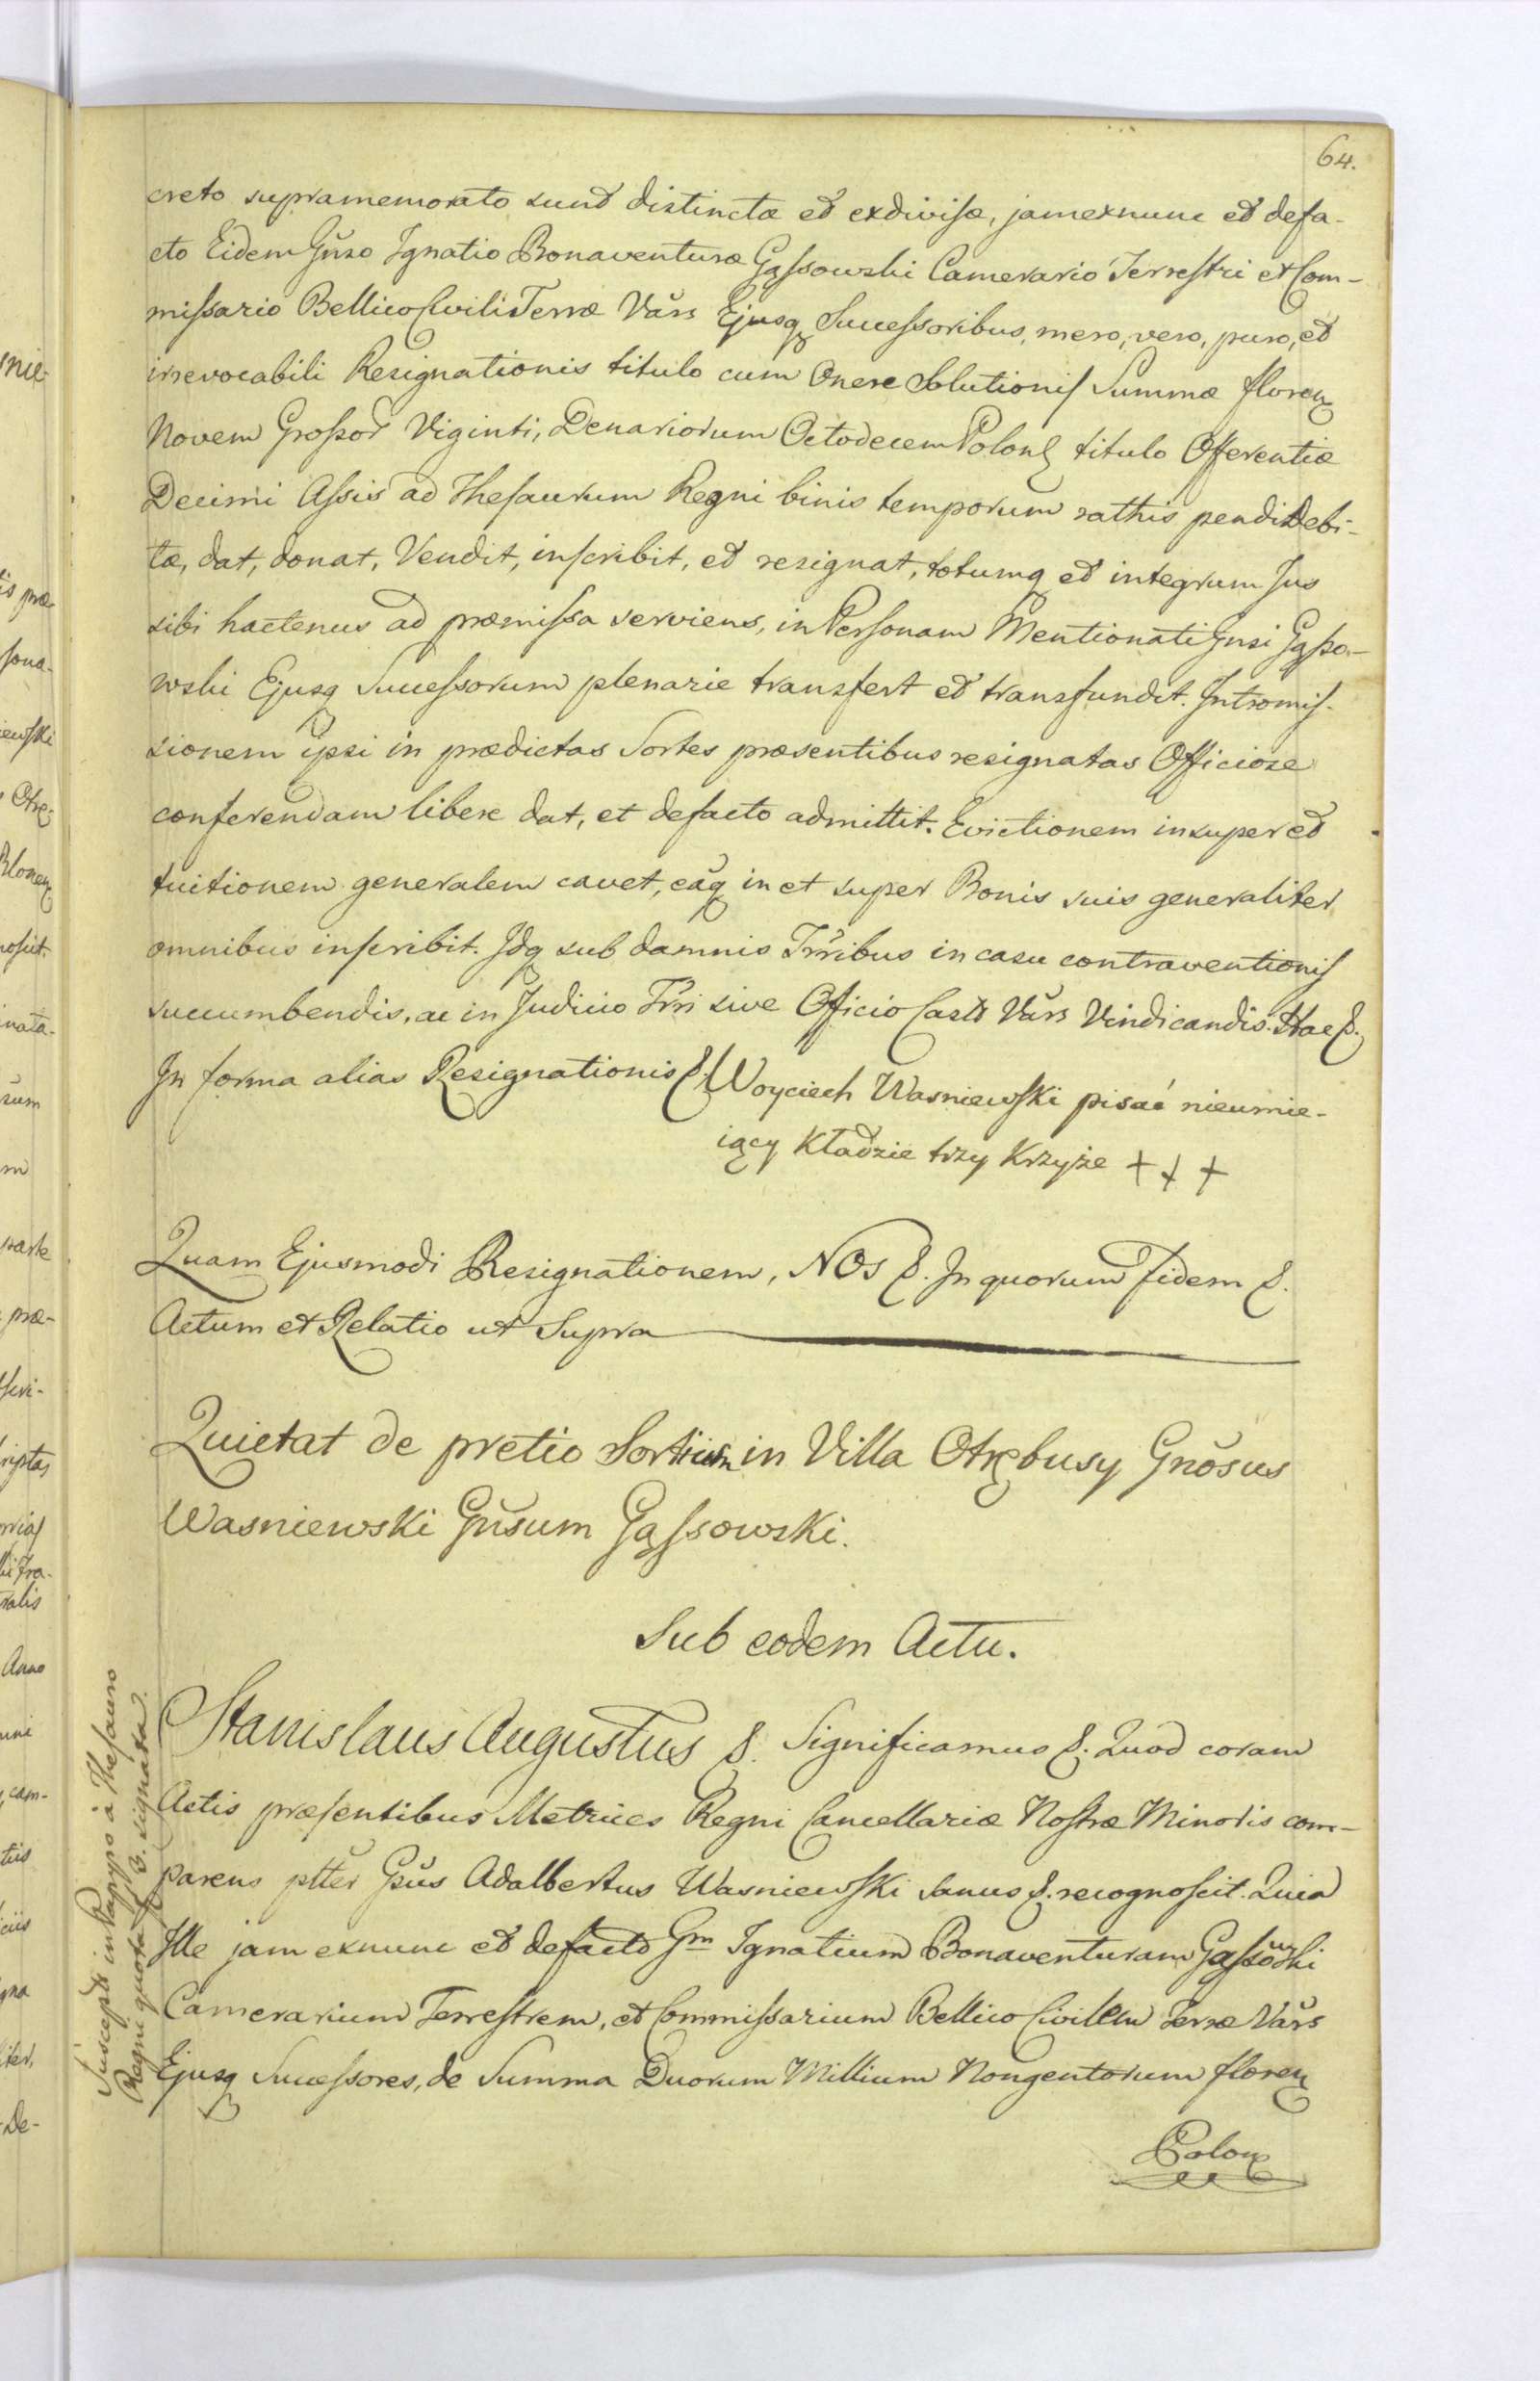 64.
creto supramemorato sunt distinctæ et exdivisæ, jamexnunc et defa-
cto Eidem Gňso Ignatio Bonaventuræ Gąssowski Camerario Terrestri et Com-
missario Bellico Civili Terræ Vărs Ejusq Successoribus, mero, vero, puro, et
irrevocabili Resignationis titulo cum Onere Solutionis Summæ floren
Novem Grossor Viginti, Denariorum Octodecem Polon titulo Offerentiæ
Decimi Assis ad Thesaurum Regni binis temporum rathis pendi Debi-
tæ, dat, donat, Vendit, inscribit, et resignat, totumq et integrum Jus
sibi hactenus ad præmissa serviens, in Personam Mentionati Gnsi Gąsso-
wski Ejusq Successorum plenarie transfert et transfundit. Intromis-
sionem ipsi in prædictas Sortes præsentibus resignatas Officiose
conferendam libere dat, et defacto admittit. Evictionem insuper et
tuitionem generalem cavet, eaq in et super Bonis suis generaliter
omnibus inscribit. Idq sub damnis Trribus in casu contraventionis
succumbendis, ac in Judicio Trri sive Officio Castr Vărs Vindicandis. Hac &.
In forma alias Resignationis &. Woyciech Wasniewski pisać nieumie-
iący Kładzie trzy Krzyże + + +
Quam Ejusmodi Resignationem, NOS &. In quorum Fidem &.
Actum et Relatio ut Supra
Quietat de pretio Sortium in Villa Otrębusy Gnŏsus
Wasniewski Gňsum Gąssowski.
Sub eodem Actu.
Stanislaus Augustus &. Significamus &. Quod coram
Actis præsentibus Metrices Regni Cancellariæ Nostræ Minoris com-
parens ptter Gsŭs Adalbertus Wasniewski sanus &. recognoscit. Quia
Ille jam exnunc et defacto Gm Ignatium Bonaventuram Gąssowski
Camerarium Terrestrem, et Commissarium Bellico Civilem Terræ Vărs
Ejusq Successores, de Summa Duorum Millium Nongentorum floren
Polon
Suscepta in Papyro à Thesauro
Regni quota f 3. signata.